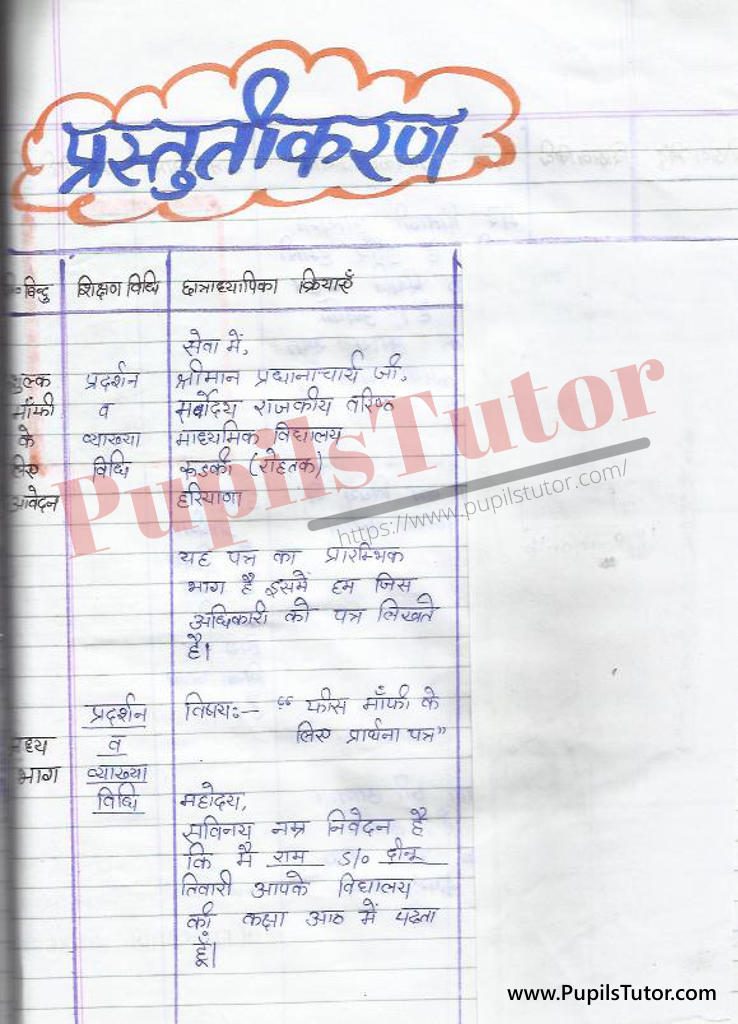 प्रस्तुतीकरण
बिन्दु शिक्षण विधि छात्राध्यापिका क्रियाएँ
सेवा में,
शुल्क प्रदर्शन श्रीमान प्रधानाचार्य जी,
माँफी व सर्वोदय राजकीय वरिष्ठ
के व्याख्या माध्यमिक विद्यालय
लिए विधि (रोहतक)
आवेदन हरियाणा
PupilsTutor
https://www.pupilstutor.com/
यह पत्र का प्रारम्भिक
भाग है इसमें हम जिस
अधिकारी को पत्र लिखते
है।
प्रदर्शन विषयः- “फीस माँफी के
मध्य व लिए प्रार्थना पत्र”
भाग व्याख्या
विधि महोदय,
सविनय नम्र निवेदन है
कि मै राम S/o दीनू
तिवारी आपके विद्यालय
की कक्षा आठ में पढता
हूँ।
www.PupilsTutor.com